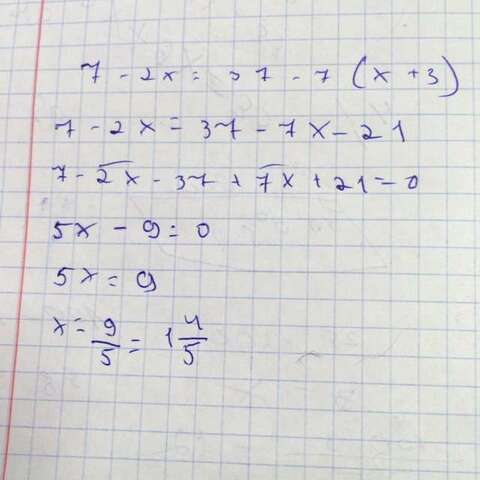 7 - 2x = 37 - 7 (x + 3)
7 - 2x = 37 - 7x - 21
7 - 2x - 37 + 7x + 21 = 0
5x - 9 = 0
5x = 9
x = 9/5 = 1 4/5